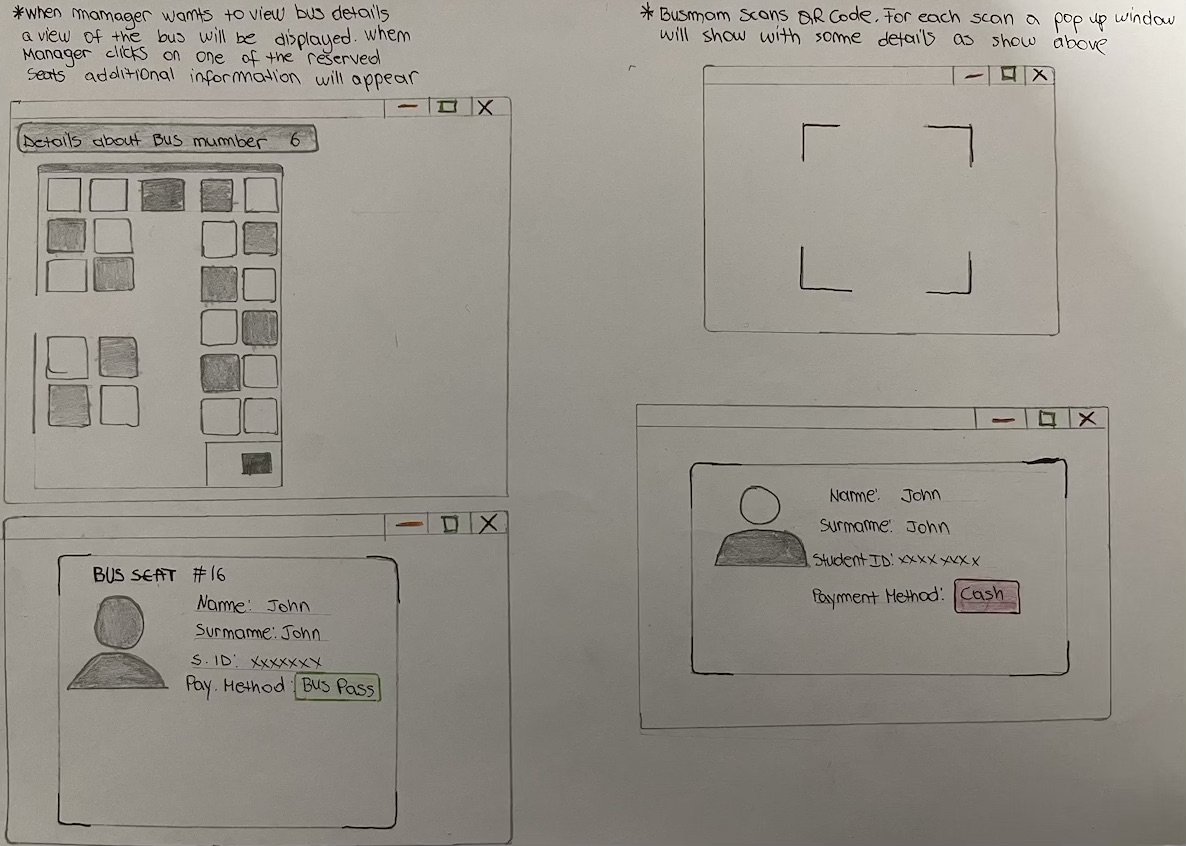 *when manager wants to view bus details
a view of the bus will be displayed. when
Manager clicks on one of the reserved
seats additional information will appear
X
Details about Bus number 6
X
BUS SEAT #16
Name: John
Surname: John
S. ID: xxxxxxx
Pay. Method: Bus Pass
* Busman scans QR Code. For each scan a pop up window
will show with some details as show above
X
X
Name: John
Surname: John
Student ID: xxxxxxxx
Payment Method: Cash